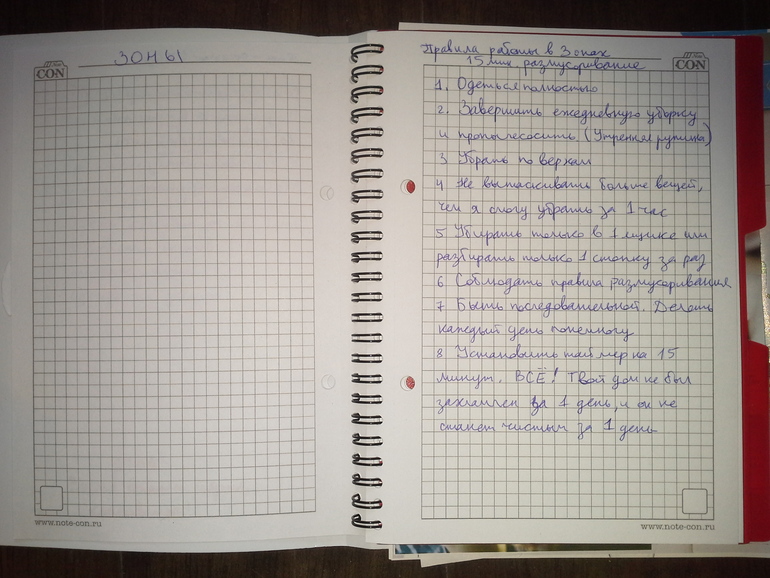 ЗОНЫ
CON
www.note-con.ru
Правила работы в Зонах
15 мин размусоривание
CON
1. Одеться полностью
2. Завершить ежедневную уборку
и пропылесосить (Утренняя рутина)
3 Убрать по верхам
4 Не вытаскивать больше вещей,
чем я смогу убрать за 1 час
5 Убирать только в 1 ящике или
разбирать только 1 стопку за раз
6 Соблюдать правила размусоривания
7 Быть последовательной. Делать
каждый день понемногу
8 Установить таймер на 15
минут. ВСЁ! Твой дом не был
захламлен за 1 день, и он не
станет чистым за 1 день
www.note-con.ru